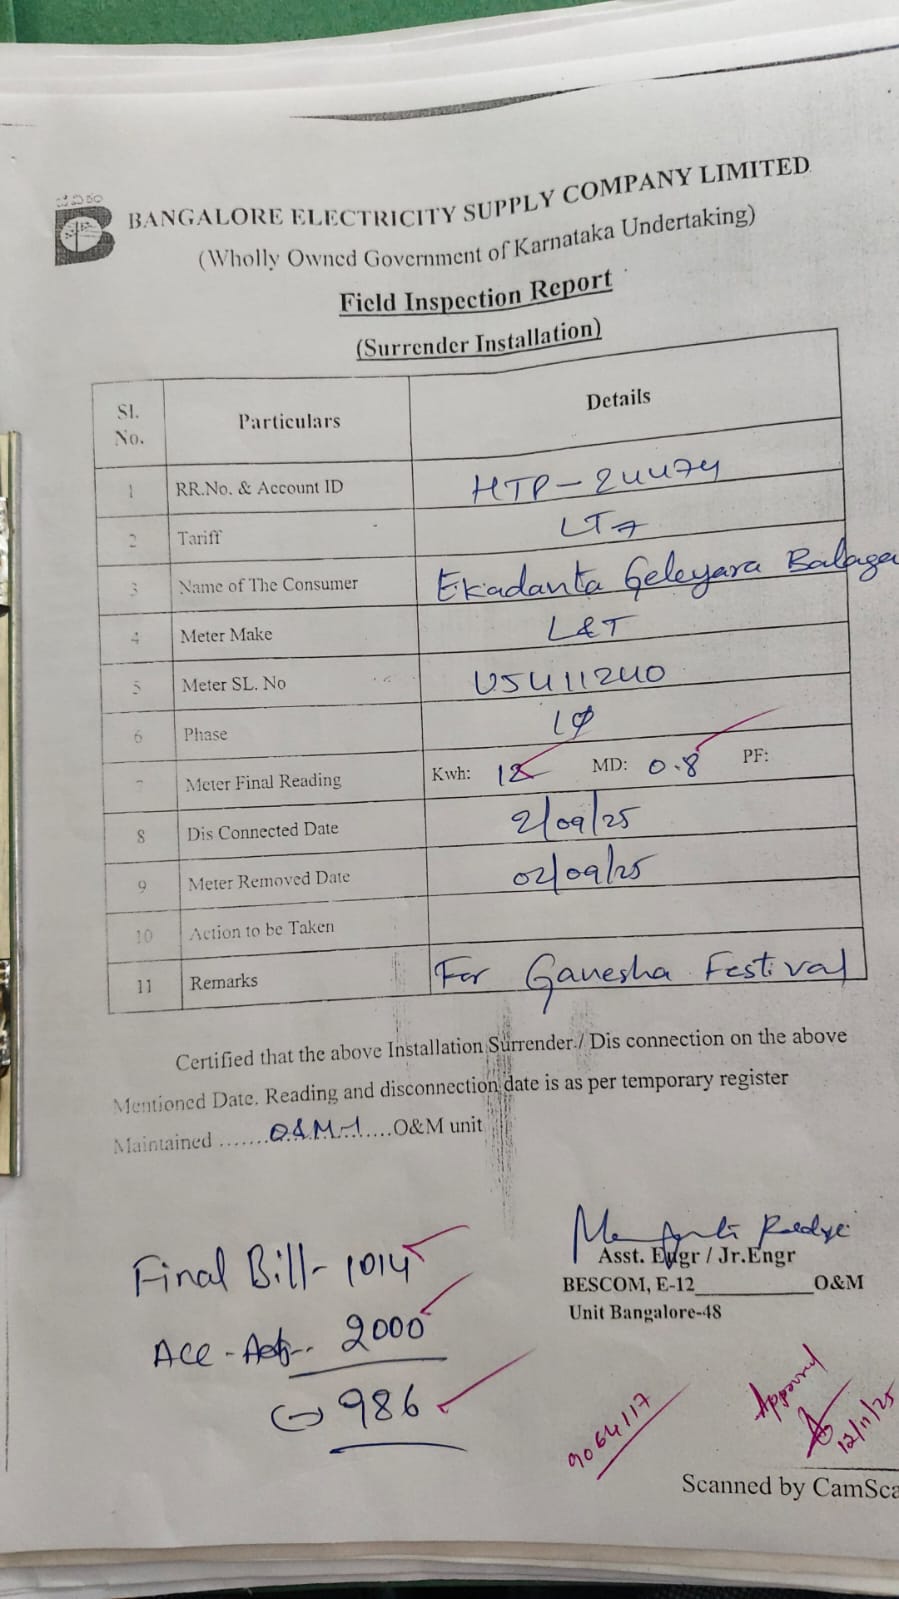 ಬೆವಿಕಂ
BANGALORE ELECTRICITY SUPPLY COMPANY LIMITED
(Wholly Owned Government of Karnataka Undertaking)
Field Inspection Report
(Surrender Installation)
Sl. No. Particulars Details
1 RR.No. & Account ID HTP-24474
2 Tariff LT7
3 Name of The Consumer Ekadanta Geleyara Balaga
4 Meter Make L&T
5 Meter SL. No U5411240
6 Phase 1φ
7 Meter Final Reading Kwh: 12 MD: 0.8 PF:
8 Dis Connected Date 2/09/25
9 Meter Removed Date 02/09/25
10 Action to be Taken
11 Remarks For Ganesha Festival
Certified that the above Installation Surrender./ Dis connection on the above
Mentioned Date. Reading and disconnection date is as per temporary register
Maintained .......O&M-1......O&M unit
Asst. Engr / Jr.Engr
BESCOM, E-12____________O&M
Unit Bangalore-48
Final Bill- 1014
2000
(-) 986
9064117
Approved
12/11/25
Scanned by CamSca